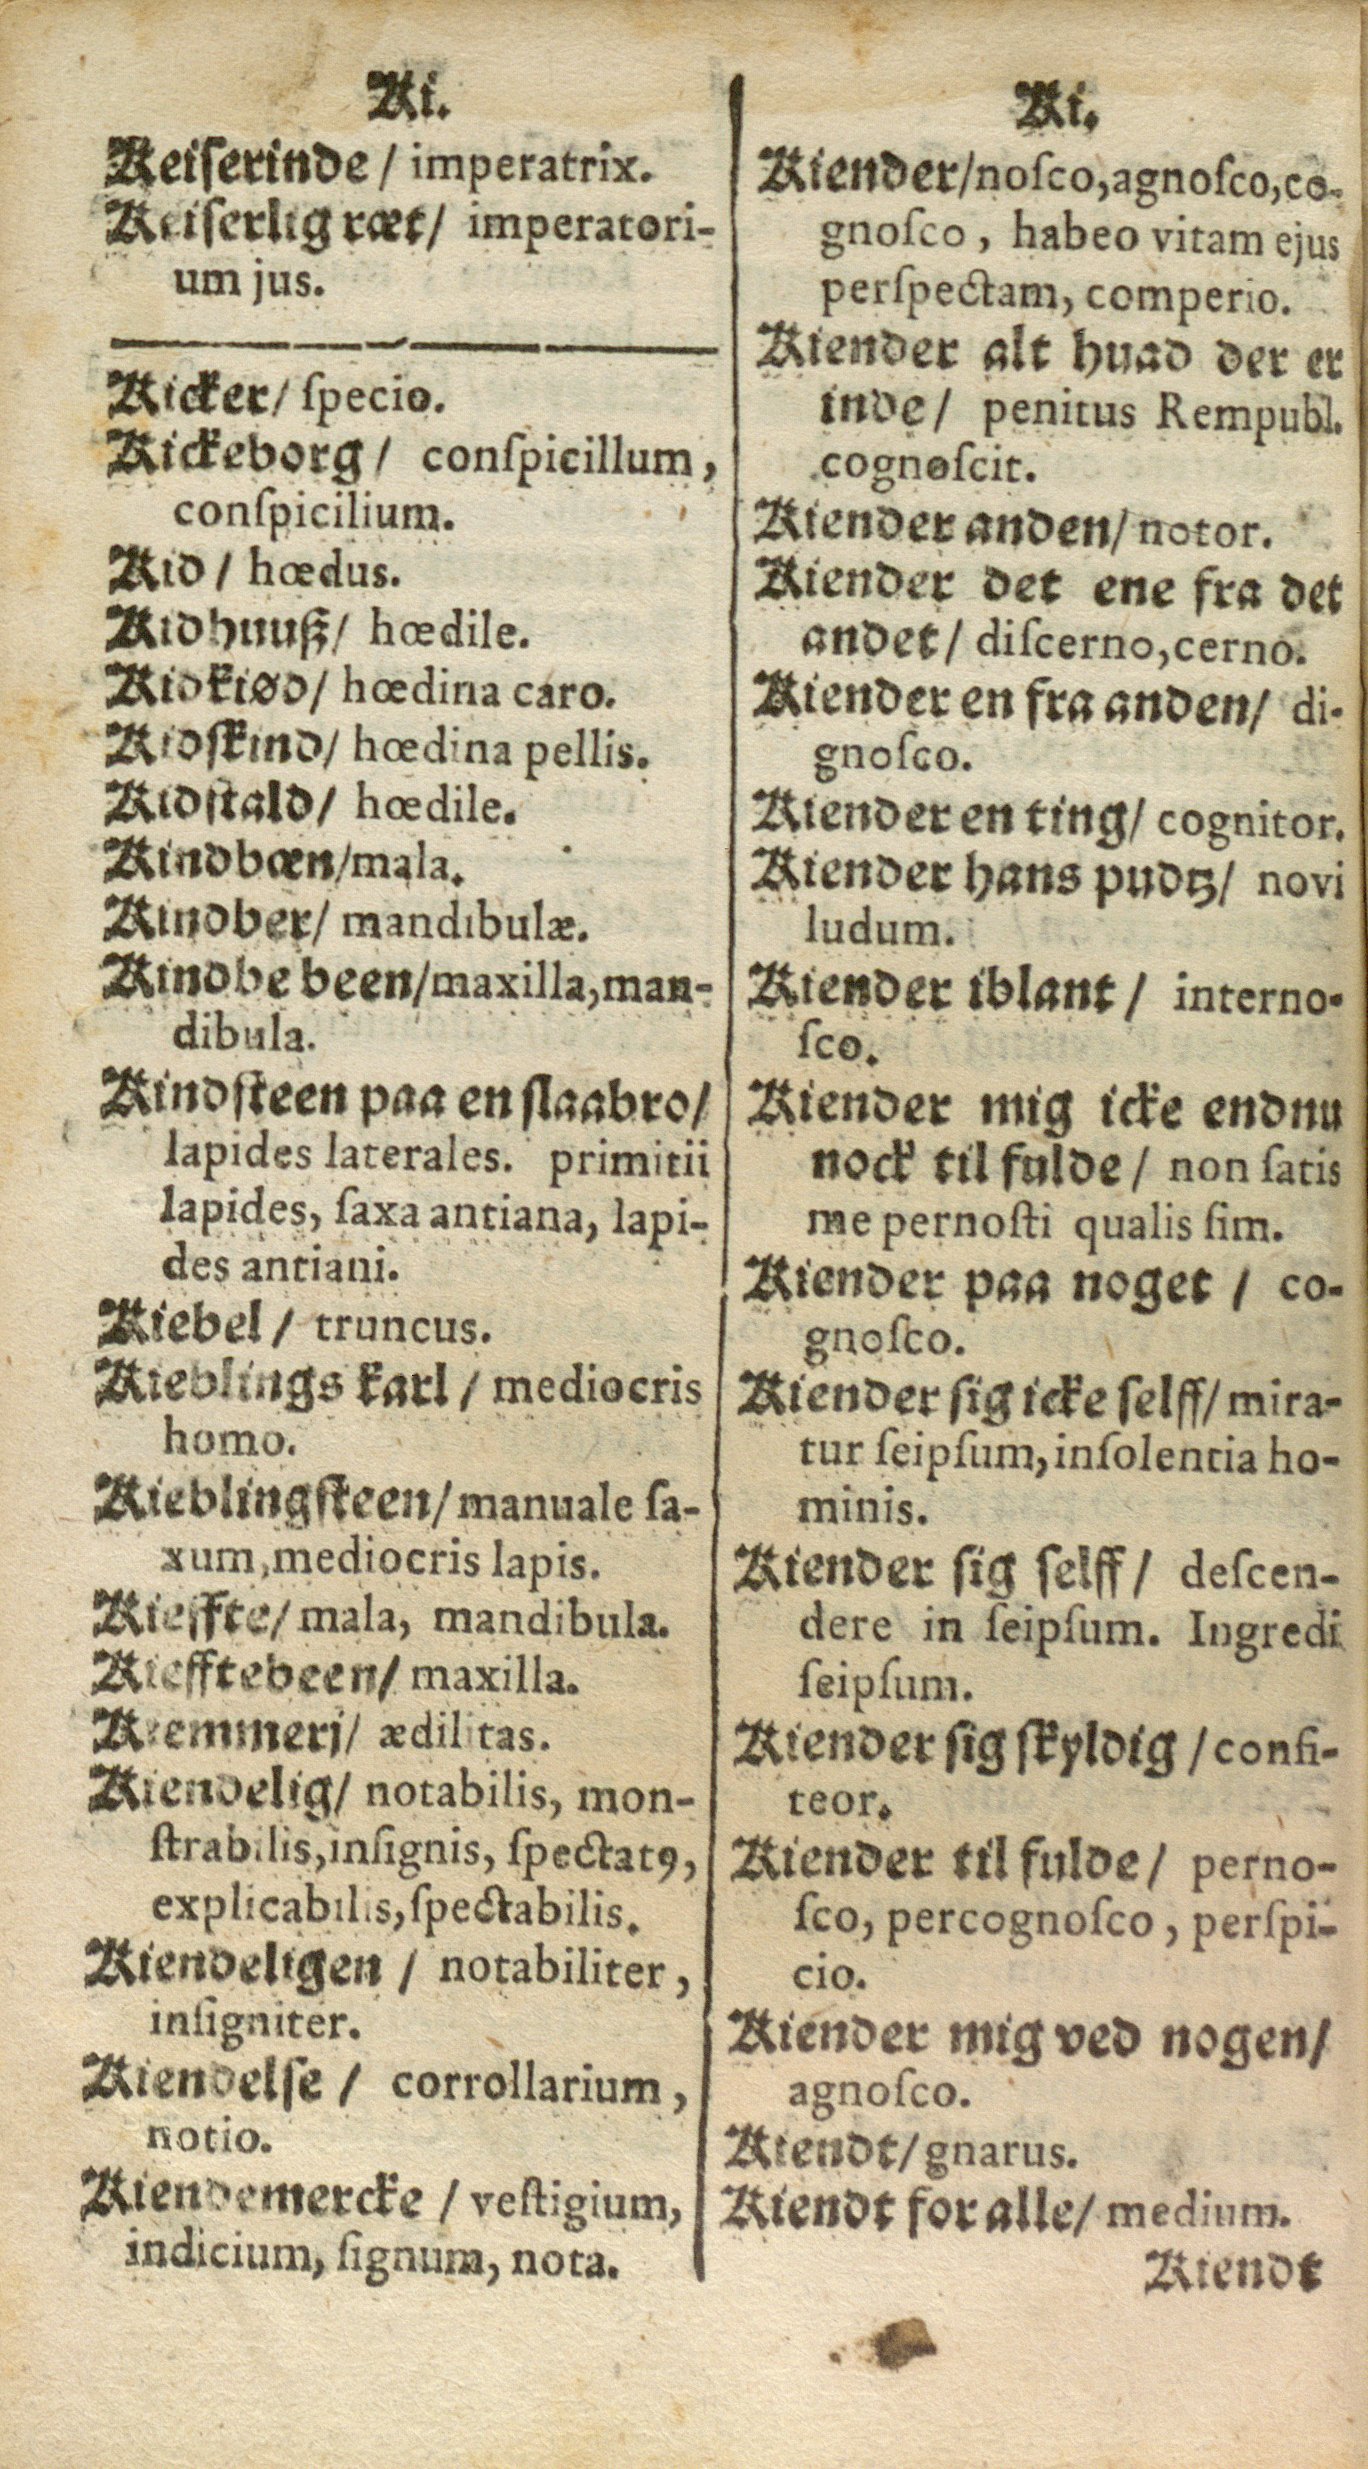 Ki.
Keiserinde / imperatrix.
Keiserlig ræt/ imperatori-
um jus.
Kicker/ ſpecio.
Kickeborg/ conſpicillum,
conſpicilium.
Kid / hœdus.
Kidhuuß/ hœdile.
Kidkiød/ hœdina caro.
Kidſkind/ hœdina pellis.
Kidſtald/ hœdile.
Kindbæn/mala.
Kindber/ mandibulæ.
Kindbe been/maxilla,man-
dibula.
Kindſteen paa en ſlaabro/
lapides laterales. primitii
lapides, ſaxa antiana, lapi-
des antiani.
Kiebel / truncus.
Kieblings karl / mediocris
homo.
Kieblingſteen/manuale ſa-
xum,mediocris lapis.
Kieffte/ mala, mandibula.
Kiefftebeen/ maxilla.
Kiemmeri/ ædilitas.
Kiendelig/ notabilis, mon-
ſtrabilis,inſignis, ſpectatꝯ,
explicabilis,ſpectabilis.
Kiendeligen / notabiliter,
inſigniter.
Kiendelſe / corrollarium,
notio.
Kiendemercke / veſtigium,
indicium, ſignum, nota.
Ki.
Kiender/noſco,agnoſco,co-
gnoſco, habeo vitam ejus
perſpectam, comperio.
Kiender alt huad der er
inde/ penitus Rempubl.
cognoſcit.
Kiender anden/ notor.
Kiender det ene fra det
andet/ diſcerno,cerno.
Kiender en fra anden/ di-
gnoſco.
Kiender en ting/ cognitor.
Kiender hans pudtz/ novi
ludum.
Kiender iblant / interno-
ſco.
Kiender mig icke endnu
nock til fulde / non ſatis
me pernoſti qualis ſim.
Kiender paa noget / co-
gnoſco.
Kiender ſig icke ſelff/ mira-
tur ſeipſum,inſolentia ho-
minis.
Kiender ſig ſelff / deſcen-
dere in ſeipſum. Ingredi
ſeipſum.
Kiender ſig ſkyldig / confi-
teor.
Kiender til fulde / perno-
ſco, percognoſco, perſpi-
cio.
Kiender mig ved nogen/
agnoſco.
Kiendt/ gnarus.
Kiendt for alle/ medium.
Kiendt